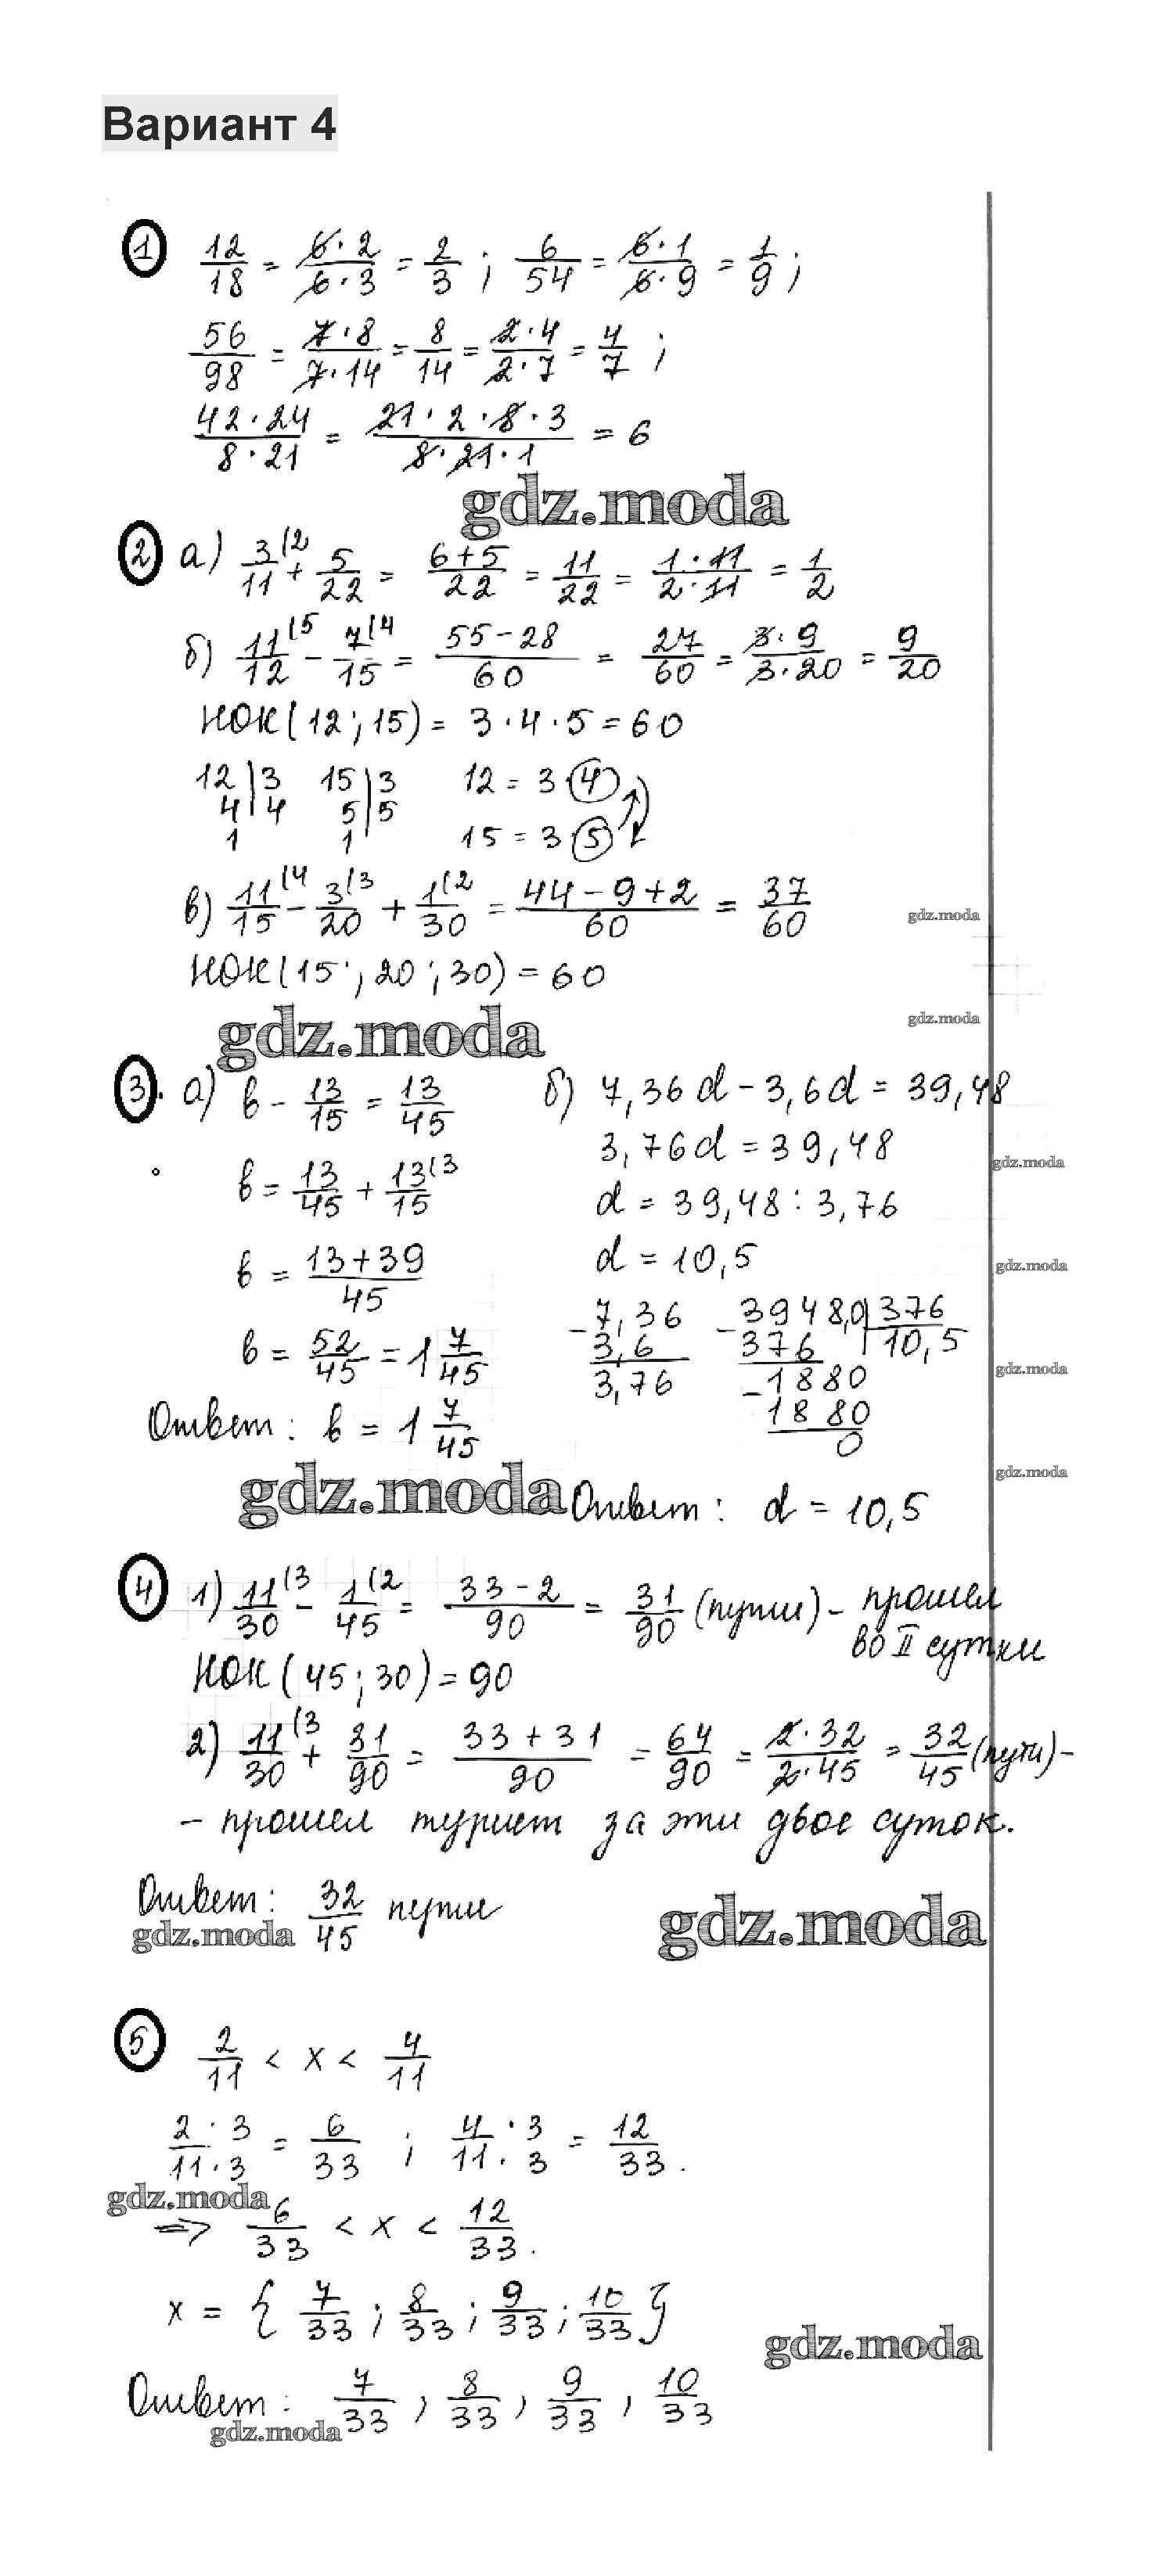 Вариант 4
① 12/18 = 6·2/6·3 = 2/3 ; 6/54 = 6·1/6·9 = 1/9 ;
56/98 = 7·8/7·14 = 8/14 = 2·4/2·7 = 4/7 ;
42·24/8·21 = 21·2·8·3/8·21·1 = 6
gdz.moda
② а) 3/11(2 + 5/22 = 6+5/22 = 11/22 = 1·11/2·11 = 1/2
б) 11/12(5 − 7/15(4 = 55−28/60 = 27/60 = 3·9/3·20 = 9/20
НОК(12;15) = 3·4·5 = 60
12|3 15|3 12 = 3·④
4|4 5|5
1 1 15 = 3·⑤
в) 11/15(4 − 3/20(3 + 1/30(2 = 44−9+2/60 = 37/60
gdz.moda
НОК(15;20;30) = 60
gdz.moda
gdz.moda
③. а) в − 13/15 = 13/45 б) 7,36d − 3,6d = 39,48
3,76d = 39,48
gdz.moda
в = 13/45 + 13/15(3 d = 39,48 : 3,76
в = 13+39/45 d = 10,5
gdz.moda
в = 52/45 = 1 7/45 −7,36 −39480|376
3,6 376 10,5
3,76 −1880
gdz.moda
1880
0
Ответ: в = 1 7/45
gdz.moda
gdz.moda
Ответ: d = 10,5
④ 1) 11/30(3 − 1/45(2 = 33−2/90 = 31/90 (пути) − прошел
во II сутки
НОК(45;30) = 90
2) 11/30(3 + 31/90 = 33+31/90 = 64/90 = 2·32/2·45 = 32/45 (пути) −
− прошел турист за эти двое суток.
Ответ: 32/45 пути
gdz.moda
gdz.moda
⑤ 2/11 < x < 4/11
2·3/11·3 = 6/33 ; 4·3/11·3 = 12/33.
gdz.moda
=> 6/33 < x < 12/33.
x = { 7/33 ; 8/33 ; 9/33 ; 10/33 }
gdz.moda
Ответ: 7/33 , 8/33 , 9/33 , 10/33
gdz.moda